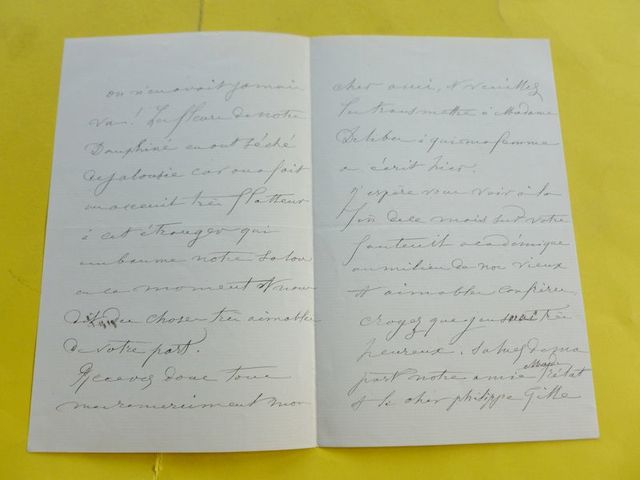 on n'en avait jamais
vu! Les fleurs de notre
Dauphiné en ont séché
de jalousie car on a fait
un accueil très flatteur
à cet étranger qui
embaume notre salon
en ce moment et nous
dit des choses très aimables
de votre part.
Recevez donc tous
mes remerciements mon
cher ami, et veuillez
les transmettre à Madame
Delibes à qui ma femme
a écrit hier.
J'espère vous voir à la
fin de ce mois sur votre
fauteuil académique
au milieu de nos vieux
et aimables confrères.
Croyez que j'en serai très
heureux. Saluez de ma
part notre amie
et le cher Philippe Gille